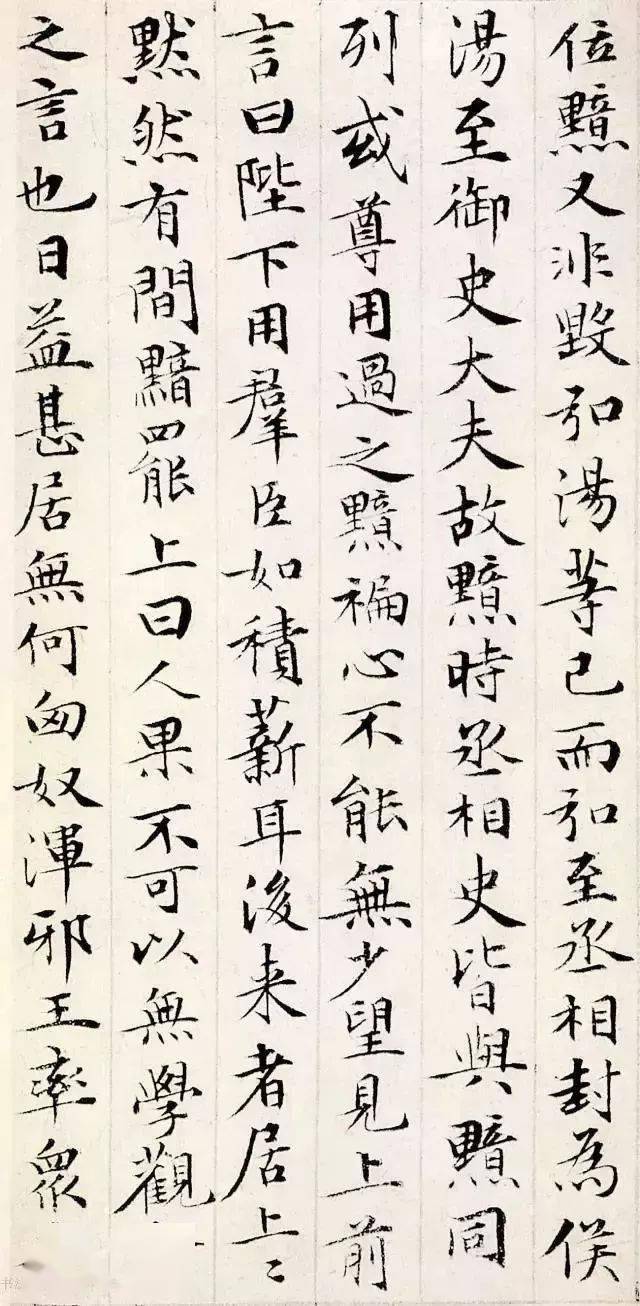 位黯又非毀弘湯等已而弘至丞相封為侯
湯至御史大夫故黯時丞相史皆與黯同
列或尊用過之黯褊心不能無少望見上前
言曰陛下用群臣如積薪耳後来者居上〻
黙然有間黯罷上曰人果不可以無學觀黯
之言也日益甚居無何匈奴渾邪王率眾